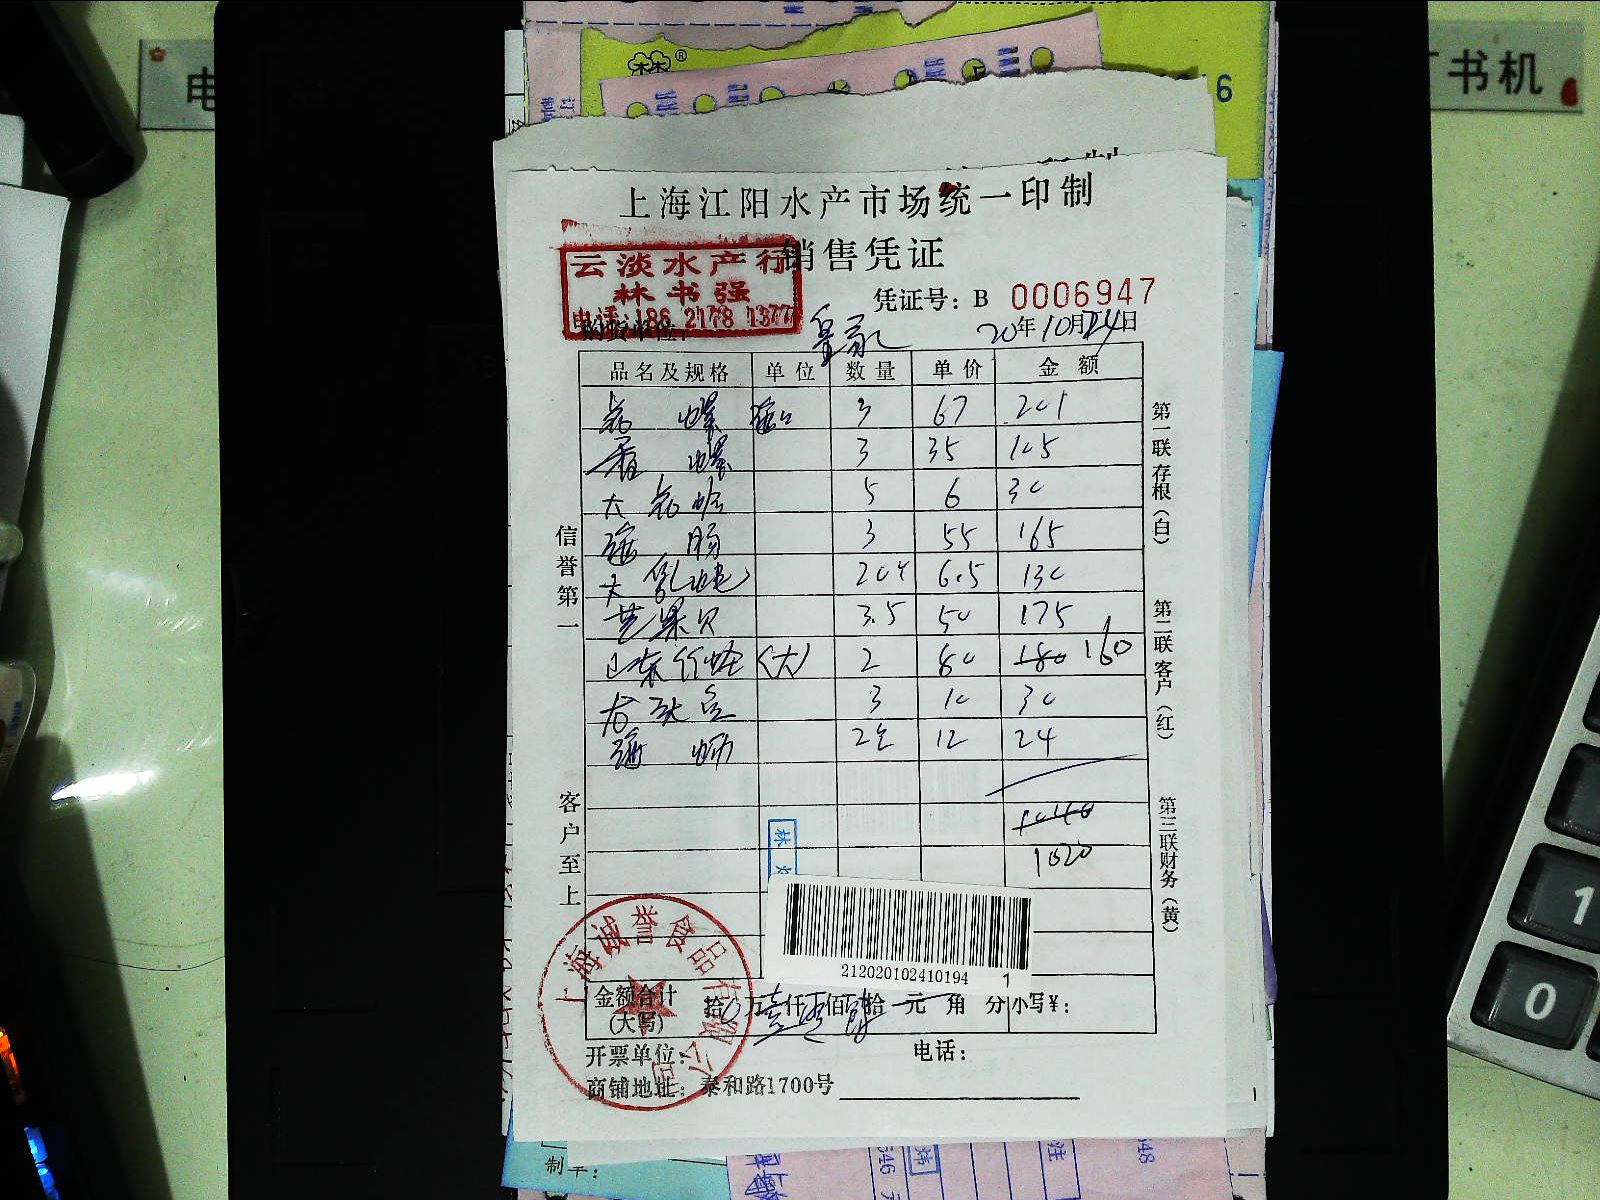 书机
上海江阳水产市场统一印制
销售凭证
云淡水产行
林书强
电话:186 2178 1377
凭证号：B 0006947
购货单位：
20年10月24日
品名及规格 单位 数量 单价 金额
花螺 3 67 201
香螺 3 35 105
大花蛤 5 6 30
海肠 3 55 165
大 6.5 130
芒果贝 3.5 50 175
山东竹蛏（大） 2 80 180 160
龙头 3 10 30
海蛎 2 12 24
1040
1020
信誉第一
客户至上
第一联存根（白）
第二联客户（红）
第三联财务（黄）
林
212020102410194 1
上海诚誉食品有限公司
金额合计（大写） 拾 万壹仟零佰贰拾 元 角 分 小写¥：
开票单位： 电话：
商铺地址：泰和路1700号
制单：